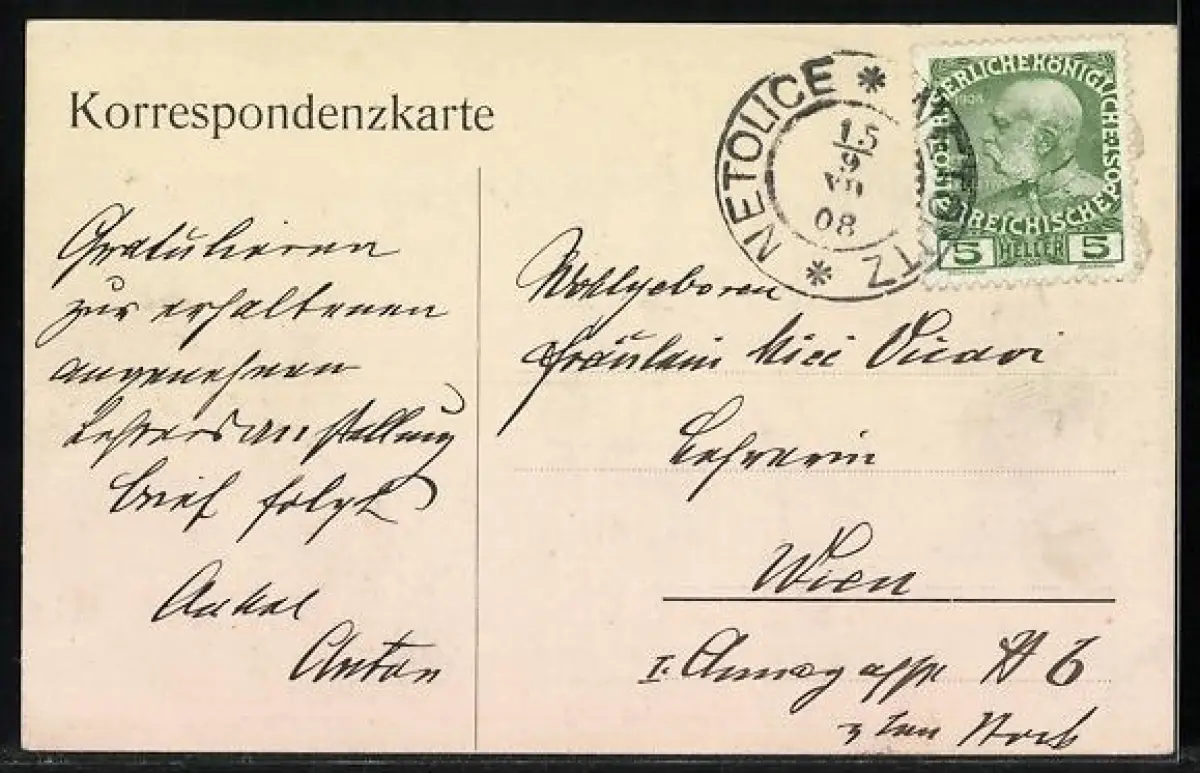 Korrespondenzkarte
NETOLICE * NETOLITZ *
15
9
VII
08
KAISERLICHEKÖNIGLICHE ÖSTERREICHISCHE POST
1908
5 HELLER 5
Gratulieren
zur erhaltenen
angenehmen
Lehrersanstellung
Brief folgt
Onkel
Anton
Wohlgeboren
Fräulein Mici
Lehrerin
Wien
I. Annagasse N
3ten Stock